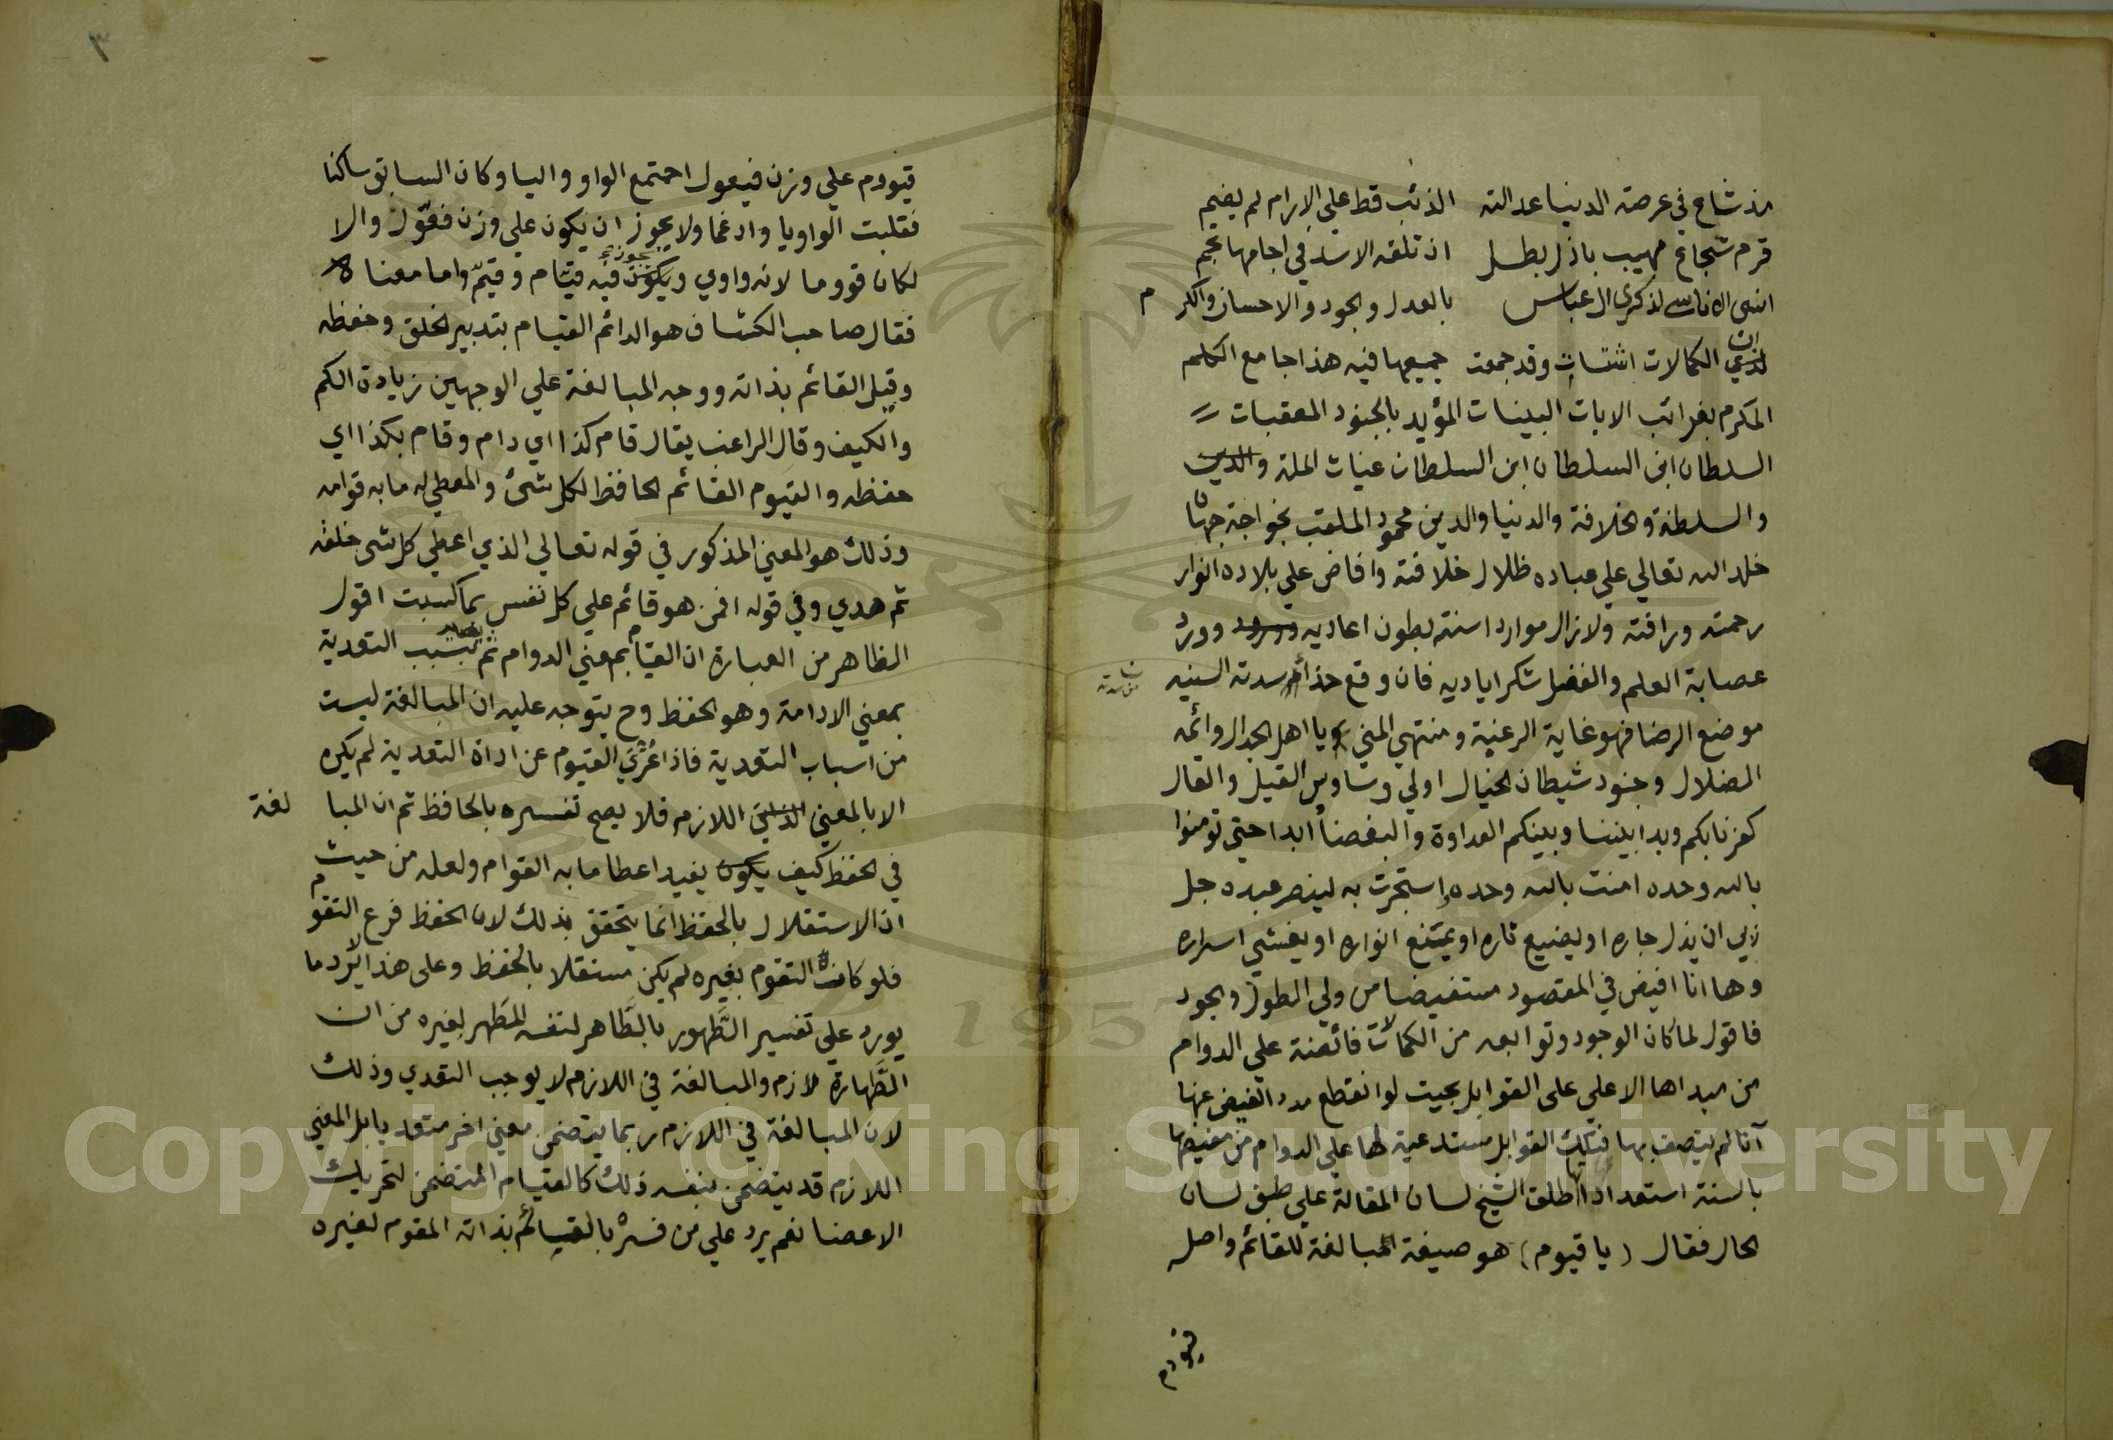 مذ شاع في عرصة الدنيا عدالته الذئب قط علي الارام لم يضيم
قرم شجاع مهيب باذل بطل ان تلقه الاسد في اجامها تجم
انسي الاناسي لذكري ال عباس بالعدل والجود والاحسان والكرم
ان الكمالات اشتات وقد جمعت جميعها فيه هذا جامع الكلم
المكرم بغرائب الايات البينات المؤيد بالجنود المعقبات
السلطان ابن السلطان ابن السلطان غياث الملة والدين
والسلطنة والخلافة والدنيا والدين محمود الملقب بخواجة جهان
خلد الله تعالي علي عباده ظلال خلافته وافاض علي بلاده انوار
رحمته ورافته ولازال موارد اسنته بطون اعاديه وورد
عصابة العلم والفضل شكر اياديه فان وقع من سدته السنيه
موضع الرضا فهو غاية الرغبة ومنتهي المني ويا اهل الجدال وائمة
الضلال وجنود شيطان الخيال اولي وساوس القيل والقال
كفرنا بكم وبدا بيننا وبينكم العداوة والبغضاء ابدا حتي تومنوا
بالله وحده امنت بالله وحده واستجرت به لينصر عبده جل
ربي ان يذل جاره او يضيع ثاره او يمتنع انواره او يفشي اسراره
وها انا افيض في المقصود مستفيضا من ولي الطول والجود
فاقول لما كان الوجود وتوابعه من الكمالات فائضة علي الدوام
من مبداها الاعلي علي القوابل بحيث لو انقطع مدد الفيض عنها
آنا لم يتصف بها فتلك القوابل مستدعية لها علي الدوام من مفيضها
بالسنة استعداداتها اطلق الشيخ لسان المقالة علي طبق لسان
الحال فقال (يا قيوم) هو صيغة المبالغة للقائم واصله
قيووم
٣
قيووم علي وزن فيعول اجتمع الواو واليا وكان السابق ساكنا
فقلبت الواو يا وادغما ولا يجوز ان يكون علي وزن فعّول والا
لكان قووما لانه واوي ويجوز فيه قيّام وقيّم واما معناه
فقال صاحب الكشاف هو الدائم القيام بتدبير الخلق وحفظه
وقيل القائم بذاته ووجه المبالغة علي الوجهين زيادة الكم
والكيف وقال الراغب يقال قام كذا اي دام وقام بكذا اي
حفظه والقيوم القائم الحافظ لكل شئ والمعطي له ما به قوامه
وذلك هو المعني المذكور في قوله تعالي الذي اعطي كل شي خلقه
ثم هدي وفي قوله افمن هو قائم علي كل نفس بما كسبت اقول
الظاهر من العبارة ان القيام بمعني الدوام ثم يصير بسبب التعدية
بمعني الادامة وهو الحفظ وح يتوجه عليه ان المبالغة ليست
من اسباب التعدية فاذا عُرّي القيوم عن اداة التعدية لم يكن
الا بالمعني اللازم فلا يصح تفسيره بالحافظ ثم ان المبالغة
في الحفظ كيف يفيد اعطا ما به القوام ولعله من حيث
ان الاستقلال بالحفظ انما يتحقق بذلك لان الحفظ فرع التقوم
فلو كان التقوم بغيره لم يكن مستقلا بالحفظ وعلى هذا لا يرد ما
يورد علي تفسير الطَّهور بالطَّاهر لنفسه المطَهر لغيره من ان
الطَّهارة لازم والمبالغة في اللازم لا يوجب التعدي وذلك
لان المبالغة في اللازم ربما يتضمن معني اخر متعديا بل المعني
اللازم قد يتضمن بنفسه ذلك كالقيام المتضمن لتحريك
الاعضا نعم يرد علي من فسره بالقائم بذاته المقوم لغيره
Copyright © King Saud University
1957